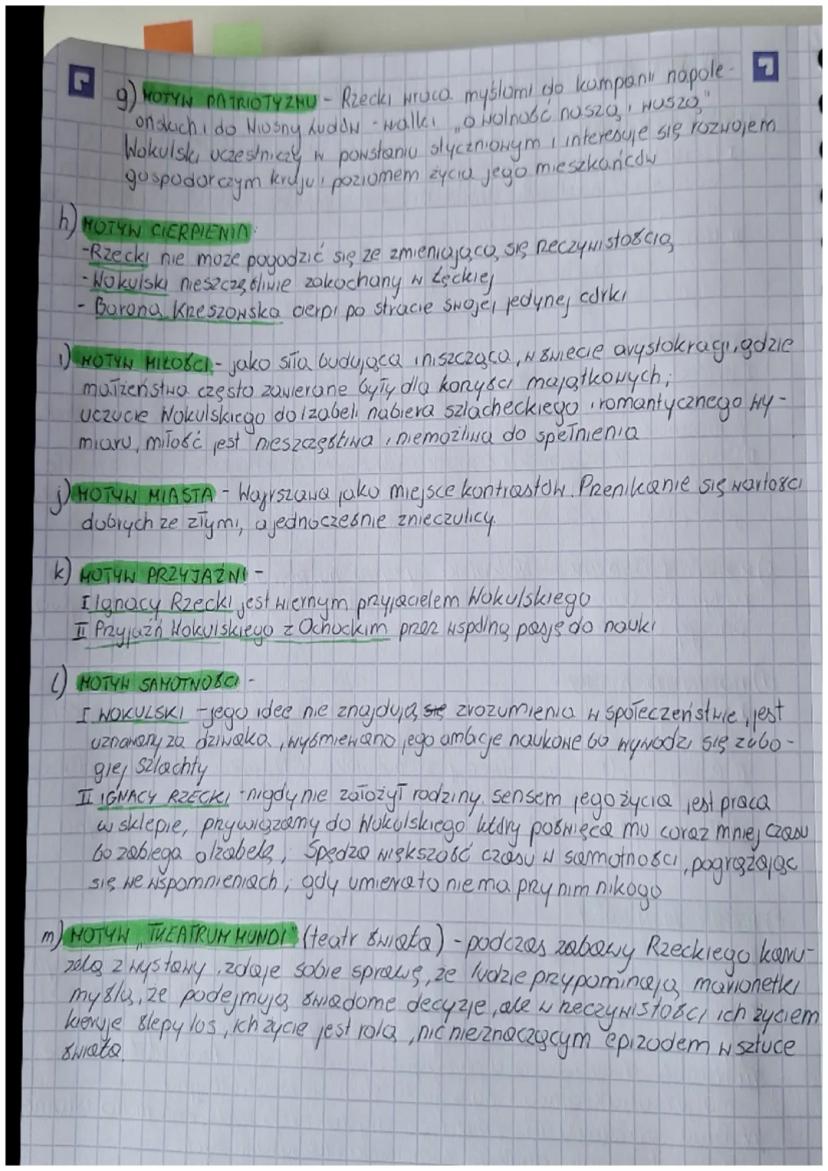 g) MOTYW PATRIOTYZMU - Rzecki wraca myślami do kampanii napole-
ońskich i do Wiosny Ludów - walki „o wolność naszą i waszą"
Wokulski uczestniczy w powstaniu styczniowym i interesuje się rozwojem
gospodarczym kraju i poziomem życia jego mieszkańców
h) MOTYW CIERPIENIA:
-Rzecki nie może pogodzić się ze zmieniającą się rzeczywistością
-Wokulski nieszczęśliwie zakochany w Łęckiej
- Barona Krzeszowska cierpi po stracie swojej jedynej córki
i) MOTYW MIŁOŚCI - jako siła budująca i niszcząca, w świecie arystokracji, gdzie
małżeństwa często zawierane były dla korzyści majątkowych;
uczucie Wokulskiego do Izabeli nabiera szlacheckiego i romantycznego wy-
miaru, miłość jest nieszczęśliwa i niemożliwa do spełnienia
j) MOTYW MIASTA - Warszawa jako miejsce kontrastów. Przenikanie się wartości
dobrych ze złymi, a jednocześnie znieczulicy.
k) MOTYW PRZYJAŹNI -
I Ignacy Rzecki jest wiernym przyjacielem Wokulskiego
II Przyjaźń Wokulskiego z Ochockim przez wspólną pasję do nauki
l) MOTYW SAMOTNOŚCI -
I WOKULSKI - jego idee nie znajdują się zrozumienia w społeczeństwie, jest
uznawany za dziwaka, wyśmiewano jego ambicje naukowe bo wywodzi się z ubo-
giej szlachty
II IGNACY RZECKI - nigdy nie założył rodziny, sensem jego życia jest praca
w sklepie, przywiązany do Wokulskiego który poświęca mu coraz mniej czasu
bo zabiega o Izabelę, Spędza większość czasu w samotności, pogrążając
się we wspomnieniach, gdy umiera to nie ma przy nim nikogo
m) MOTYW „THEATRUM MUNDI" (teatr świata) - podczas zabawy Rzeckiego karu-
zelą z wystawy, zdaje sobie sprawę, że ludzie przypominają marionetki
myślą, że podejmują świadome decyzje, ale w rzeczywistości ich życiem
kieruje ślepy los, ich życie jest rolą, nic nieznaczącym epizodem w sztuce
świata.